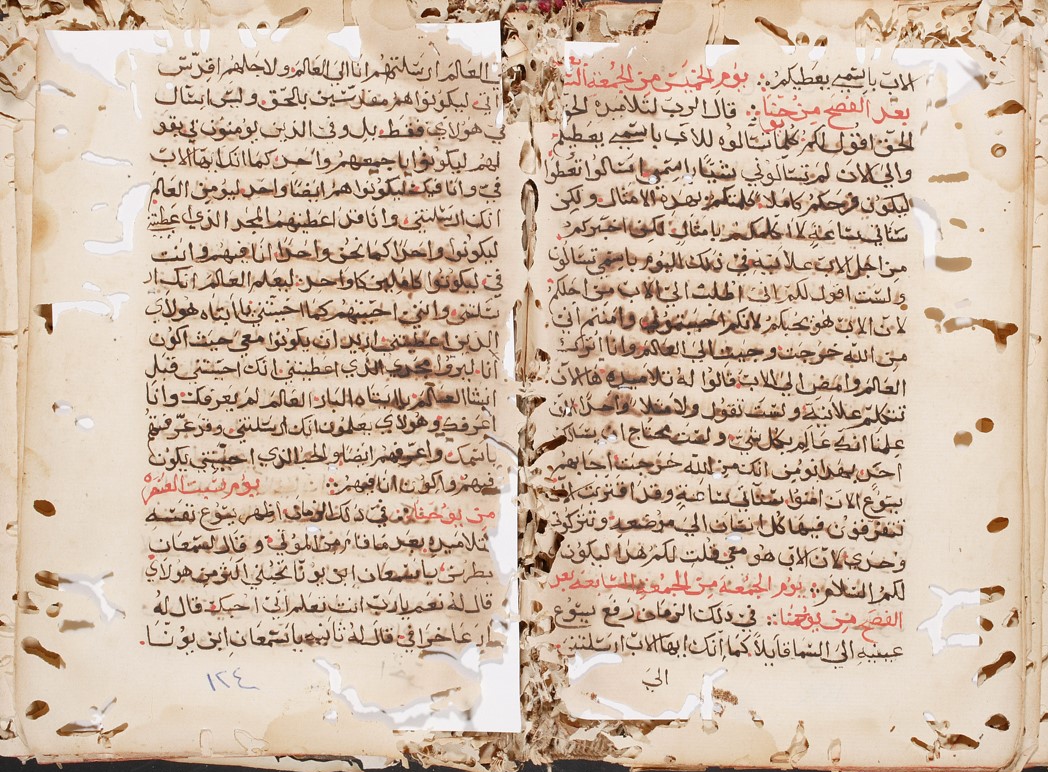 الاب باسمي يعطيكم يوم الخميس من الجمعه
بعد الفصح من يوحنا قال الرب لتلاميذه الحق
الحق اقول لكم كلما تسالوه للاب باسمي يعطيكم
والي الان لم تسالوني شيئا باسمي اسالوا تعطوا
ليكون فرحكم كاملا كلمتكم بهذه الامثال ولكن
ستاتي ساعه لا اكلمكم بامثال لكني اخبركم
من اجل الاب علانيه في ذلك اليوم باسمي تسالون
ولست اقول لكم اني اطلب الي الاب من اجلكم
لان الاب هو يحبكم لانكم احببتموني وامنتم اني
من الله خرجت وجيت الي العالم وانا اترك
العالم وامض الي الاب قالوا له تلاميذه ها الان
تتكلم علانيه ولست تقول ولا مثلا واحدا الان
علمنا انك عالم بكل شي ولست محتاج ان يسالك
احد بهذا نومن انك من الله خرجت اجابهم
يسوع الان امنوا ستاتي ساعه وقد اقتربت
تتفرقون فيها كل انسان الي موضعه وتتركوني
وحدي لان الاب هو معي قلت لكم هذا ليكون
لكم السلام يوم الجمعه من الجمعه السابعه بعد
الفصح من يوحنا في ذلك الزمان رفع يسوع
عينيه الي السما قايلا كما انك ايها الاب ارسلتني
الي
العالم ارسلتهم انا الي العالم ولاجلهم اقدس
ليكونوا هم مقدسين بالحق وليس اسال
في هولاي فقط بل وفي الذين يومنون بي بقو
لهم ليكونوا باجمعهم واحد كما انك ايها الاب
في وانا فيك ليكونوا هم ايضا واحد ليومن العالم
انك ارسلتني وانا قد اعطيتهم المجد الذي اعطيتني
ليكونوا واحدا كما نحن واحد انا فيهم وانت
في ليكونوا كاملين كاواحد ليعلم العالم انك ار
سلتني وانني احببتهم كما احببتني يا ابتاه هولاي
الذين اعطيتني اريد ان يكونوا معي حيث اكون
انا ليرو مجدي الذي اعطيتني انك احببتني قبل
انشا العالم يا ابتاه البار العالم لم يعرفك وانا
اعرفك وهولاي يعلمون انك ارسلتني وقد عرفتهم
باسمك واعرفهم ايضا والحب الذي احببتني يكون
فيهم واكون انا فيهم يوم سبت العنصره
من يوحنا في ذلك الزمان اظهر يسوع نفسه
لتلاميذه بعد ما قام من الموتي وقال لسمعان
بطرس يا سمعان ابن يونا تحبني اكثر من هولاي
قال له نعم يا رب انت تعلم اني احبك قال له
ار عا خرافي قال له ثانيه يا سمعان ابن يونا
١٢٤